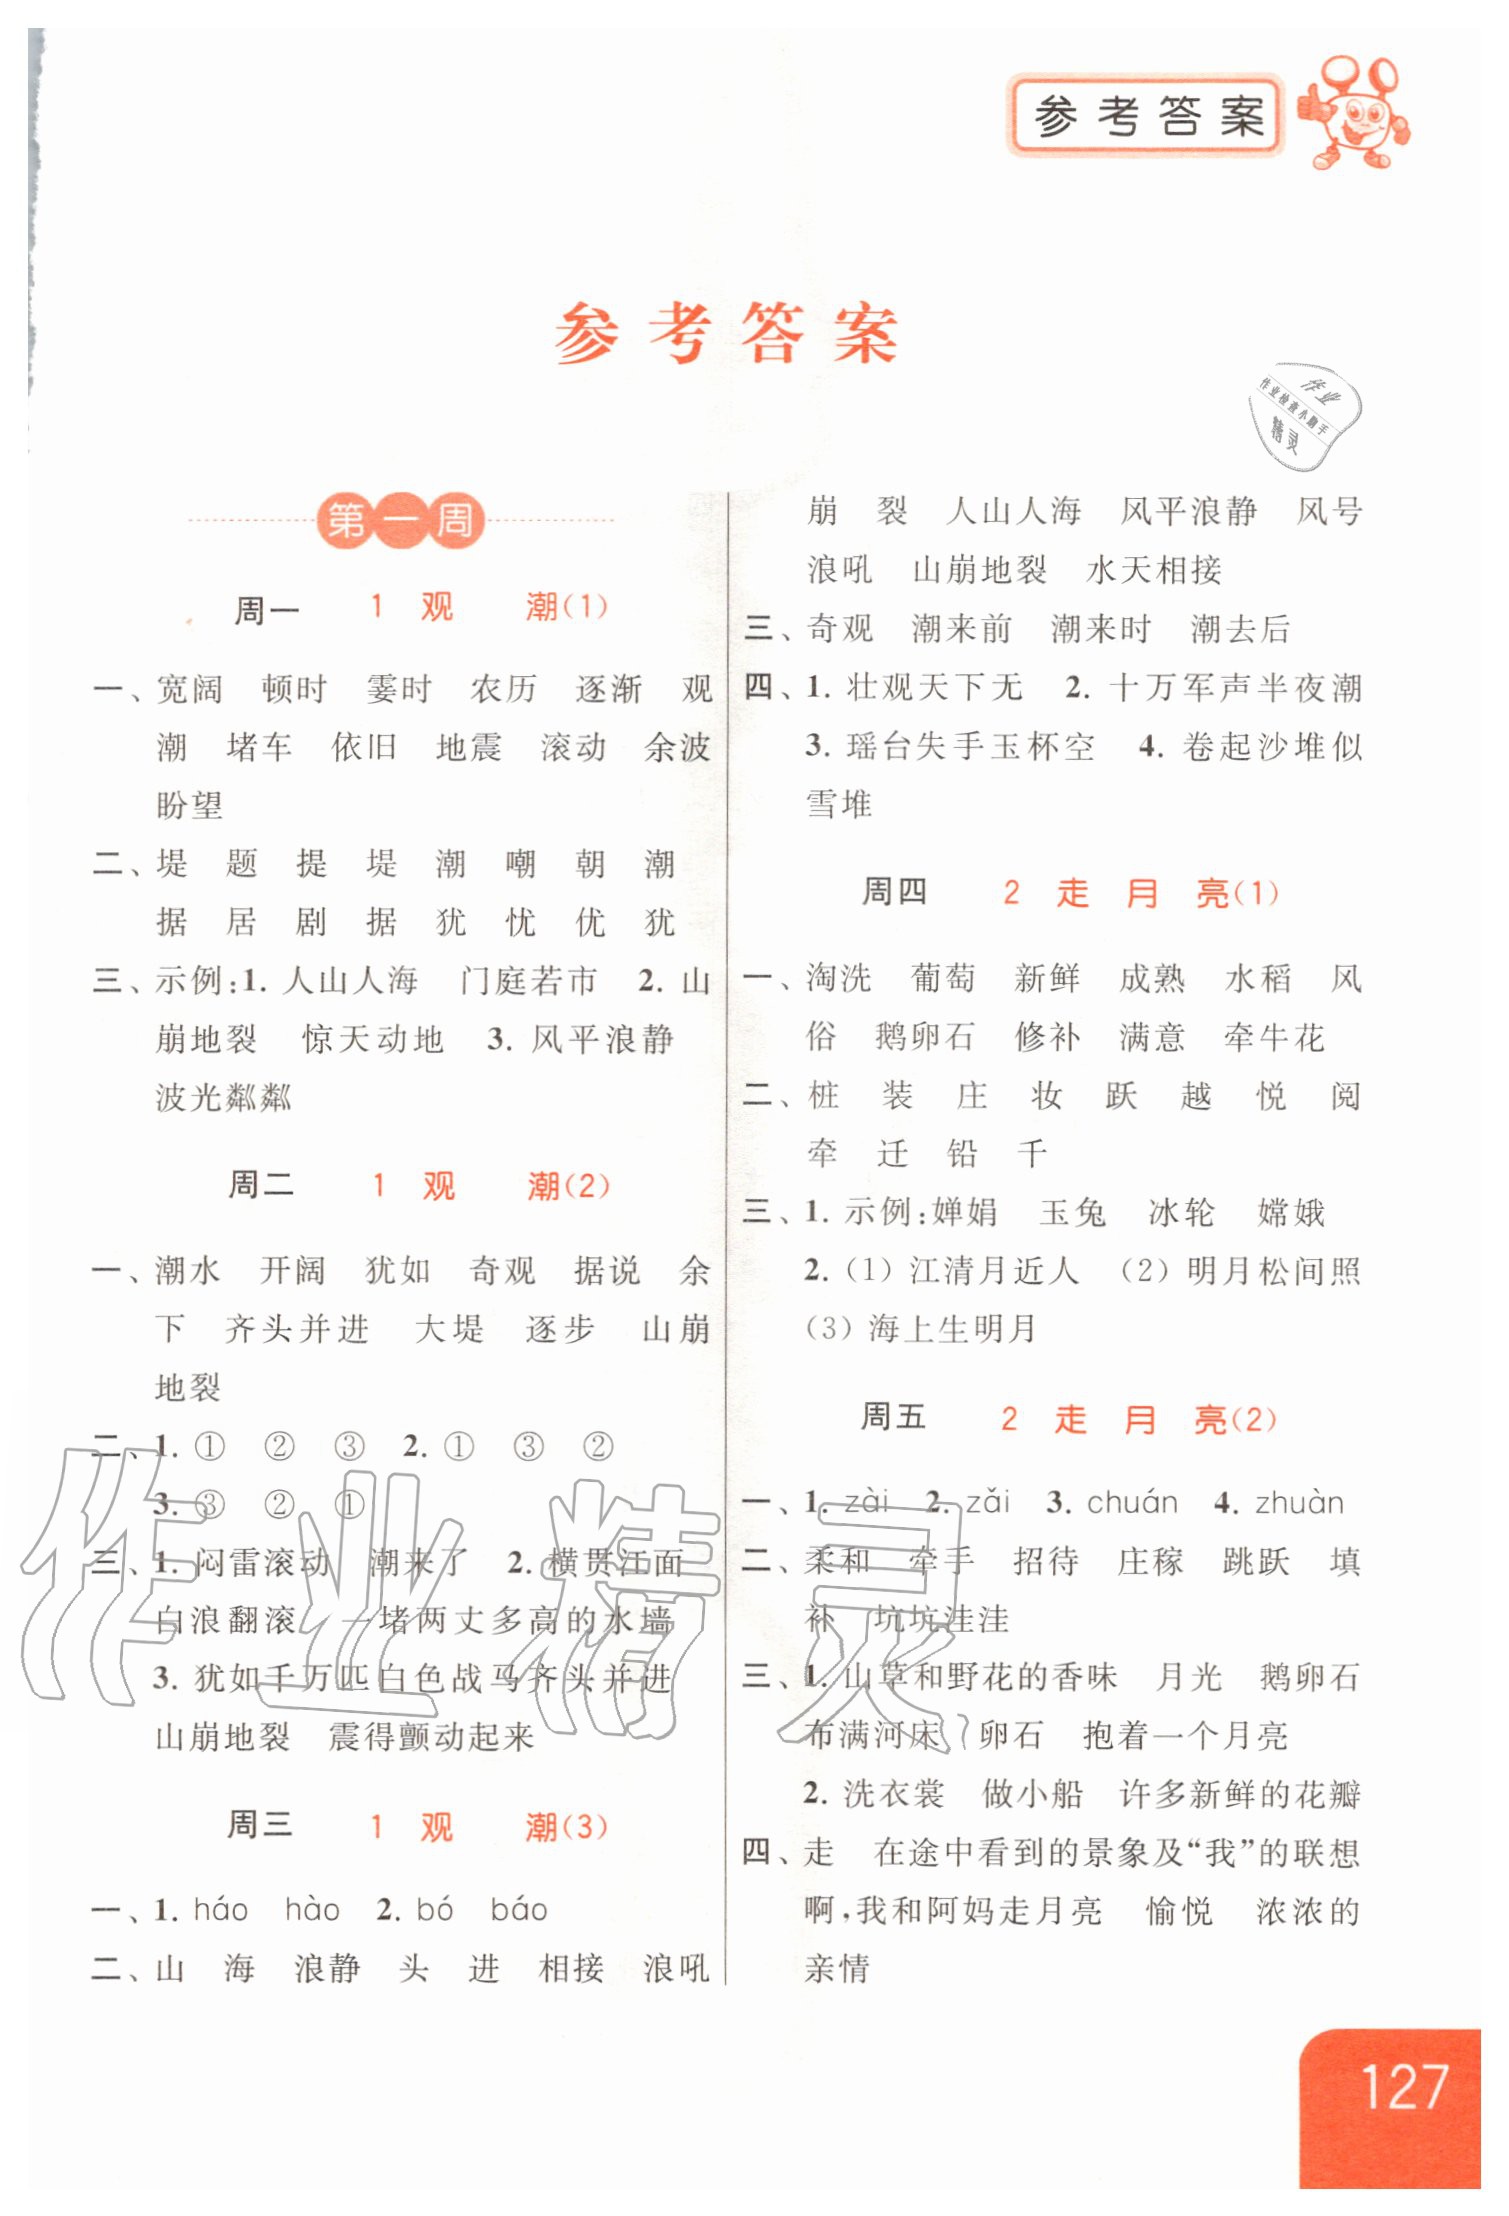 参考答案
参考答案
作业
作业检查小助手
精灵
第一周
周一 1 观 潮(1)
一、宽阔 顿时 霎时 农历 逐渐 观
潮 堵车 依旧 地震 滚动 余波
盼望
二、堤 题 提 堤 潮 嘲 朝 潮
据 居 剧 据 犹 忧 优 犹
三、示例:1. 人山人海 门庭若市 2. 山
崩地裂 惊天动地 3. 风平浪静
波光粼粼
周二 1 观 潮(2)
一、潮水 开阔 犹如 奇观 据说 余
下 齐头并进 大堤 逐步 山崩
地裂
二、1. ① ② ③ 2. ① ③ ②
3. ③ ② ①
三、1. 闷雷滚动 潮来了 2. 横贯江面
白浪翻滚 一堵两丈多高的水墙
3. 犹如千万匹白色战马齐头并进
山崩地裂 震得颤动起来
周三 1 观 潮(3)
一、1. háo hào 2. bó báo
二、山 海 浪静 头 进 相接 浪吼
崩 裂 人山人海 风平浪静 风号
浪吼 山崩地裂 水天相接
三、奇观 潮来前 潮来时 潮去后
四、1. 壮观天下无 2. 十万军声半夜潮
3. 瑶台失手玉杯空 4. 卷起沙堆似
雪堆
周四 2 走 月 亮(1)
一、淘洗 葡萄 新鲜 成熟 水稻 风
俗 鹅卵石 修补 满意 牵牛花
二、桩 装 庄 妆 跃 越 悦 阅
牵 迁 铅 千
三、1. 示例:婵娟 玉兔 冰轮 嫦娥
2. (1) 江清月近人 (2) 明月松间照
(3) 海上生明月
周五 2 走 月 亮(2)
一、1. zài 2. zǎi 3. chuán 4. zhuàn
二、柔和 牵手 招待 庄稼 跳跃 填
补 坑坑洼洼
三、1. 山草和野花的香味 月光 鹅卵石
布满河床 卵石 抱着一个月亮
2. 洗衣裳 做小船 许多新鲜的花瓣
四、走 在途中看到的景象及“我”的联想
啊,我和阿妈走月亮 愉悦 浓浓的
亲情
作业精灵
127